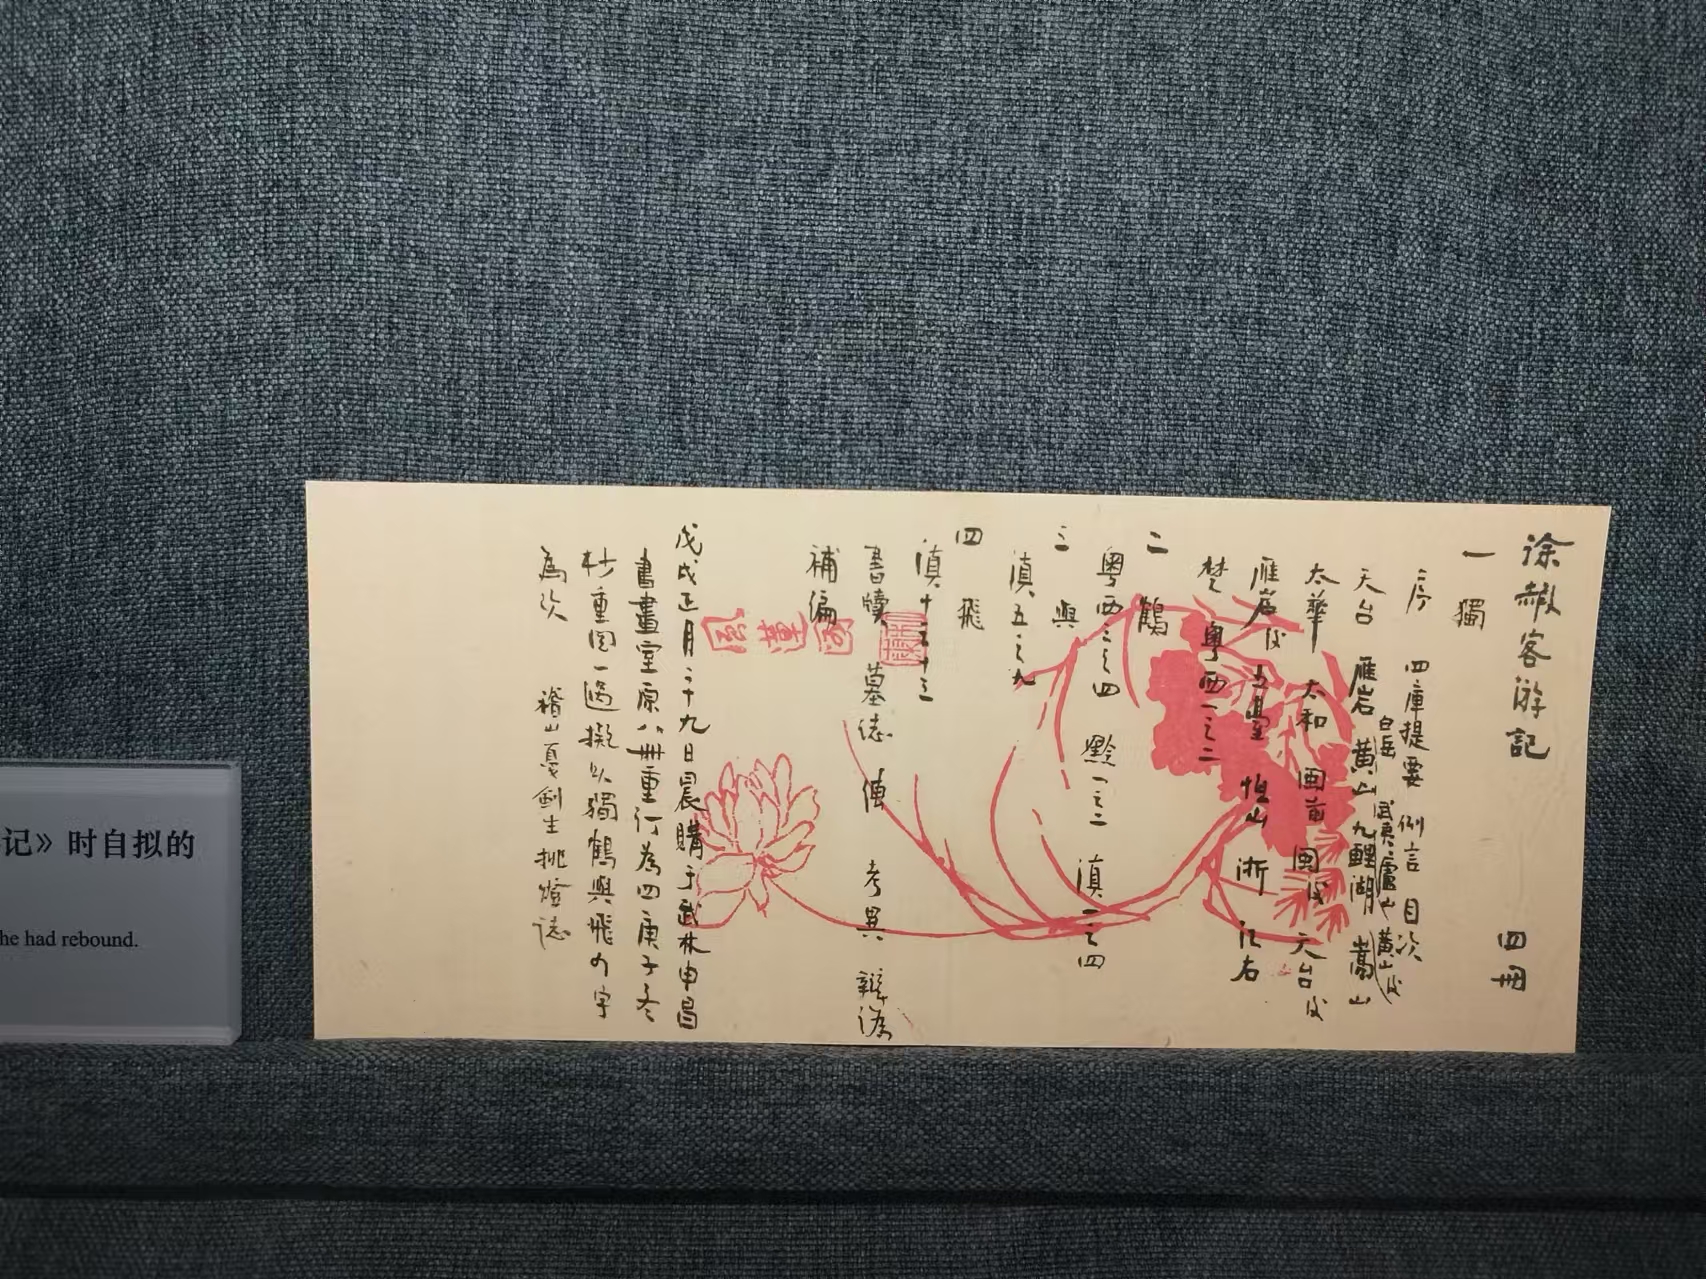 徐霞客游記 四冊
一 獨
序 四庫提要 例言 目次
天台 雁宕 白岳 黃山 武夷 廬山 黃山後 九鯉湖 嵩山
太華 太和 閩前 閩後 天台後
雁宕後 五臺 恒山 浙 江右
楚 粵西一之二
二 鶴
粵西三之四 黔一之二 滇一之四
三 與
滇五之九
四 飛
滇十之十三
書牘 墓誌 傳 考異 辯譌
補編
戊戌正月二十九日晨購于武林申昌
書畫室原八冊重訂為四庚子冬
杪重閱一過擬以獨鶴與飛四字
為次 稽山夏劍生挑燈誌
记》时自拟的
he had rebound.